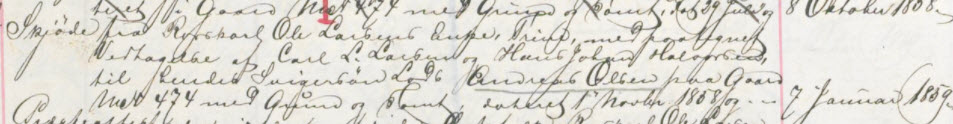 Gaard Matr 474 med Grund og Tomt, dat 29 Juli og 8 Oktober 1858.
Skjöde fra Ole Larsens Enke, Trine, med paategnet
Vedtagelse af Carl L. Larsen og Hans Johan Halvorsen,
til hendes Svigersön Andreas Olsen paa Gaard
Matr 474 med Grund og Tomt, dateret 1 Novbr 1858 og 7 Januar 1859.
Ole